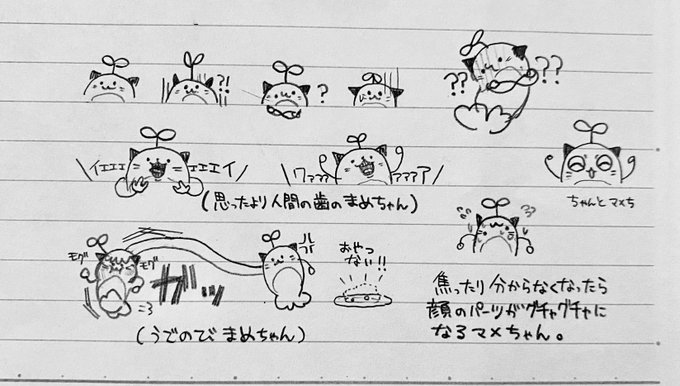 ?!
?
??
??
イエエエ
エエエイ
ワァァァ
ァァァア
(思ったより人間の歯のまめちゃん)
ちゃんとマメち
モグ
モグ
ガガッ
おやつ
ない!!
(うでのび まめちゃん)
焦ったり分からなくなったら
顔のパーツがグチャグチャに
なるマメちゃん。